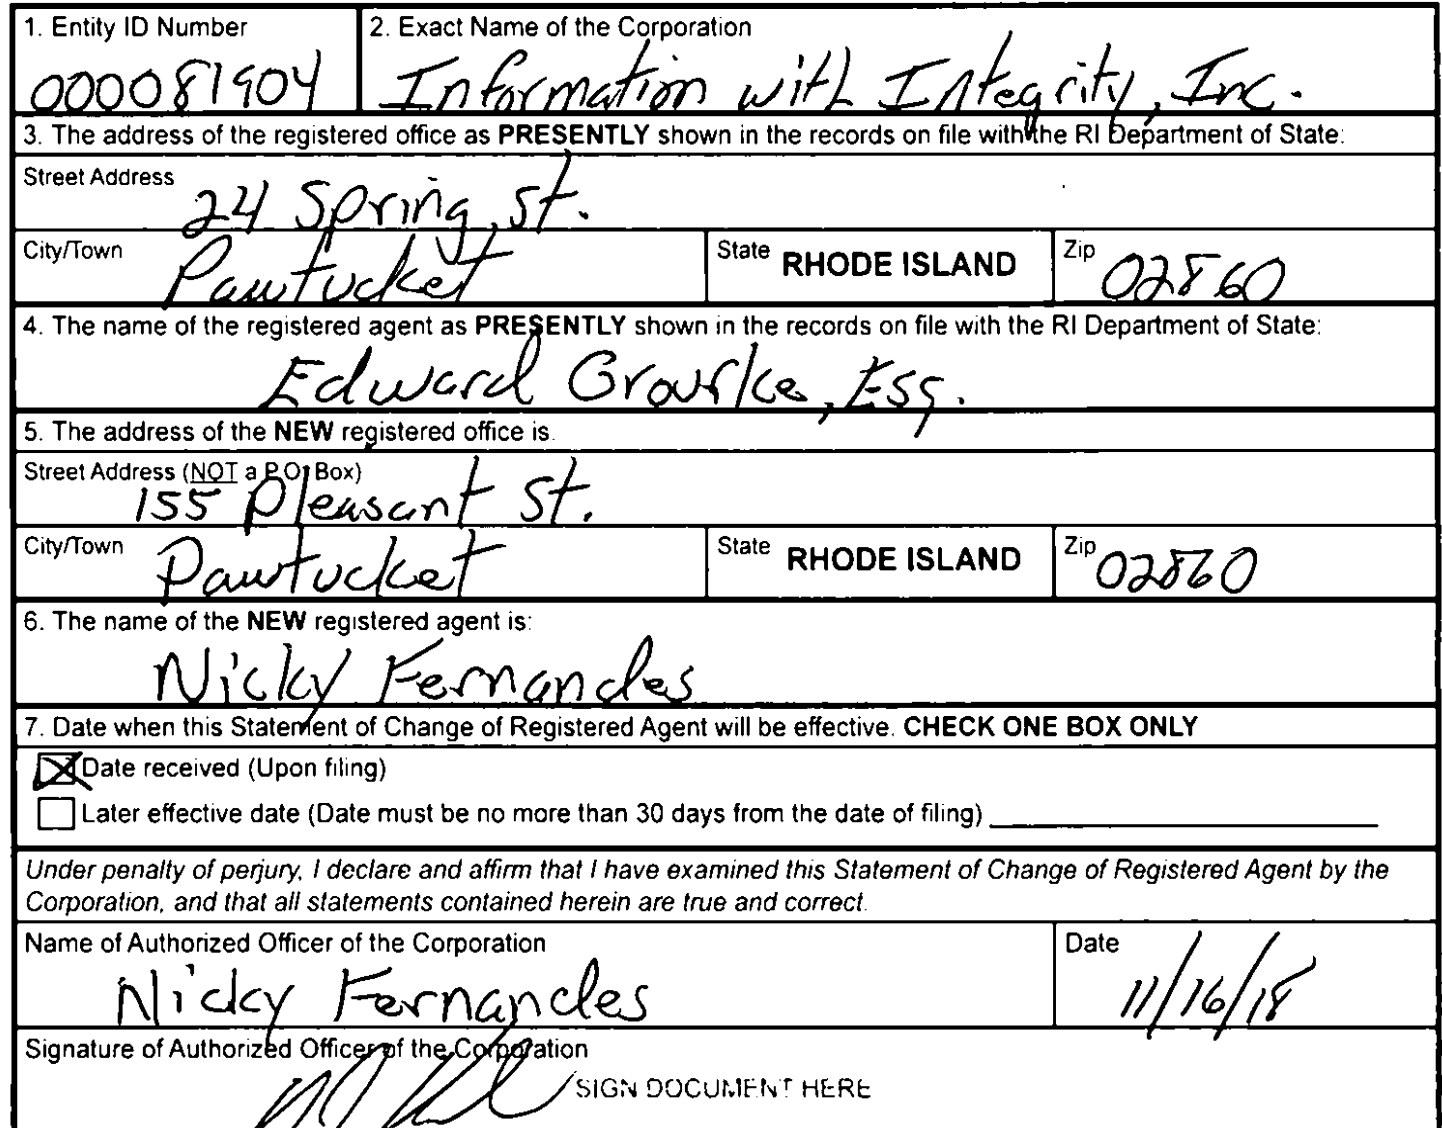 1. Entity ID Number
000081904
2. Exact Name of the Corporation
Information with Integrity, Inc.
3. The address of the registered office as PRESENTLY shown in the records on file with the RI Department of State:
Street Address 24 Spring St.
City/Town Pawtucket State RHODE ISLAND Zip 02860
4. The name of the registered agent as PRESENTLY shown in the records on file with the RI Department of State:
Edward Grourke, Esq.
5. The address of the NEW registered office is.
Street Address (NOT a P.O. Box)
155 Pleasant St.
City/Town Pawtucket State RHODE ISLAND Zip 02860
6. The name of the NEW registered agent is:
Nicky Fernandes
7. Date when this Statement of Change of Registered Agent will be effective. CHECK ONE BOX ONLY
Date received (Upon filing)
Later effective date (Date must be no more than 30 days from the date of filing)
Under penalty of perjury, I declare and affirm that I have examined this Statement of Change of Registered Agent by the
Corporation, and that all statements contained herein are true and correct.
Name of Authorized Officer of the Corporation
Nicky Fernandes
Date
11/16/18
Signature of Authorized Officer of the Corporation
SIGN DOCUMENT HERE